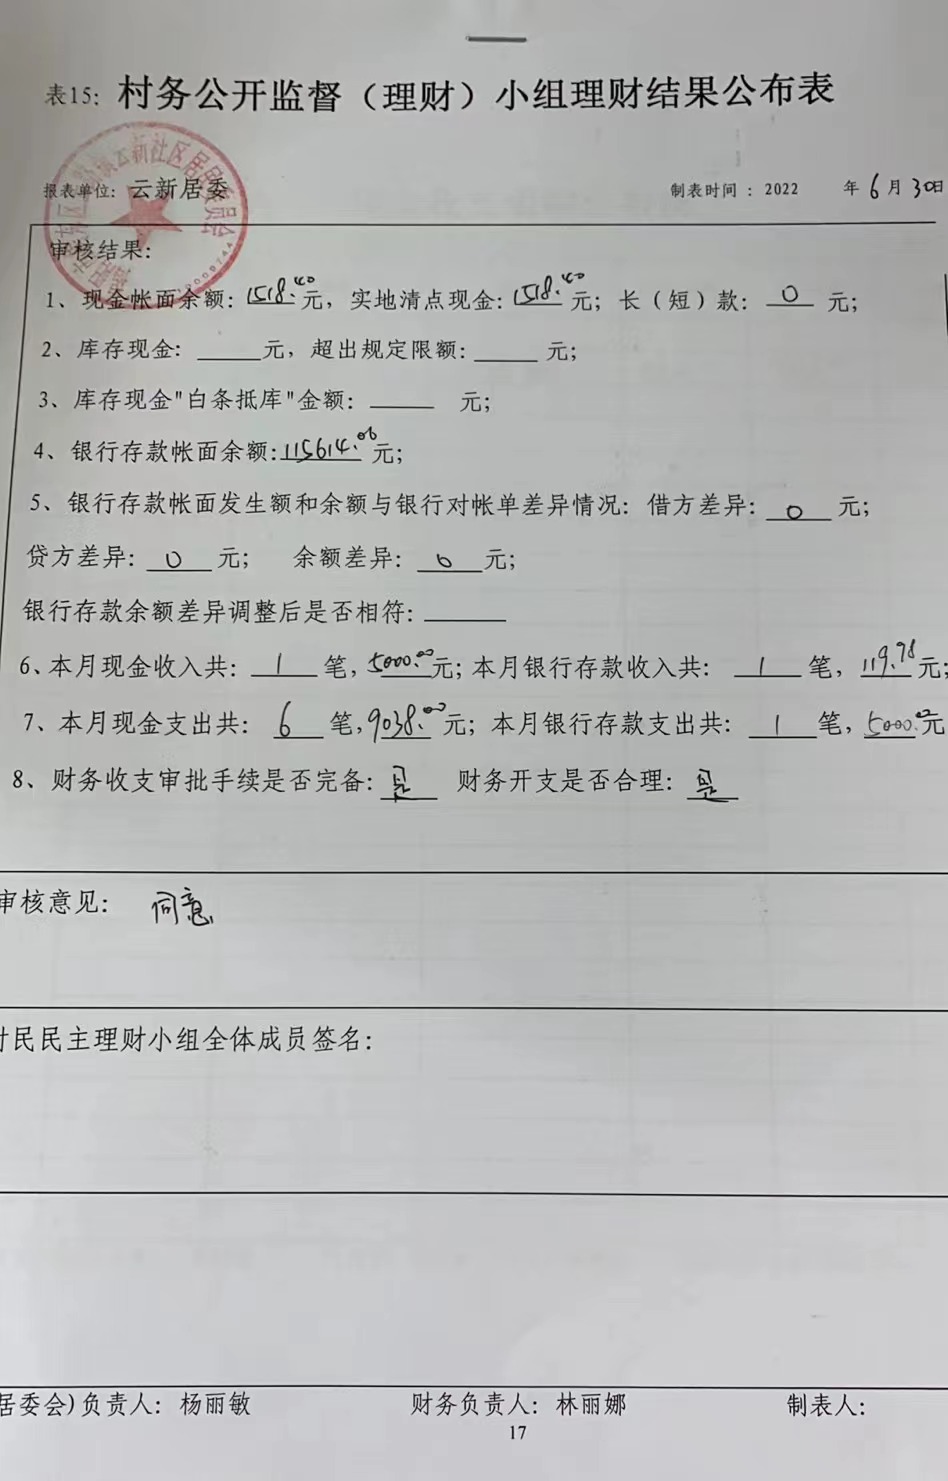 表15: 村务公开监督（理财）小组理财结果公布表
报表单位: 云新居委 制表时间 : 2022 年 6 月 30日
审核结果:
1、现金帐面余额: 1518.40元, 实地清点现金: 1518.40元; 长（短）款: 0 元;
2、库存现金: ____元, 超出规定限额: ____ 元;
3、库存现金"白条抵库"金额: ____ 元;
4、银行存款帐面余额:115614.06元;
5、银行存款帐面发生额和余额与银行对帐单差异情况: 借方差异: 0 元;
贷方差异: 0 元; 余额差异: 0 元;
银行存款余额差异调整后是否相符: ____
6、本月现金收入共: 1 笔, 5000.00元; 本月银行存款收入共: 1 笔, 119.78元;
7、本月现金支出共: 6 笔, 9038.00元; 本月银行存款支出共: 1 笔, 5000.00元
8、财务收支审批手续是否完备: 是 财务开支是否合理: 是
审核意见: 同意
村民民主理财小组全体成员签名:
居委会)负责人: 杨丽敏 财务负责人: 林丽娜 制表人:
17